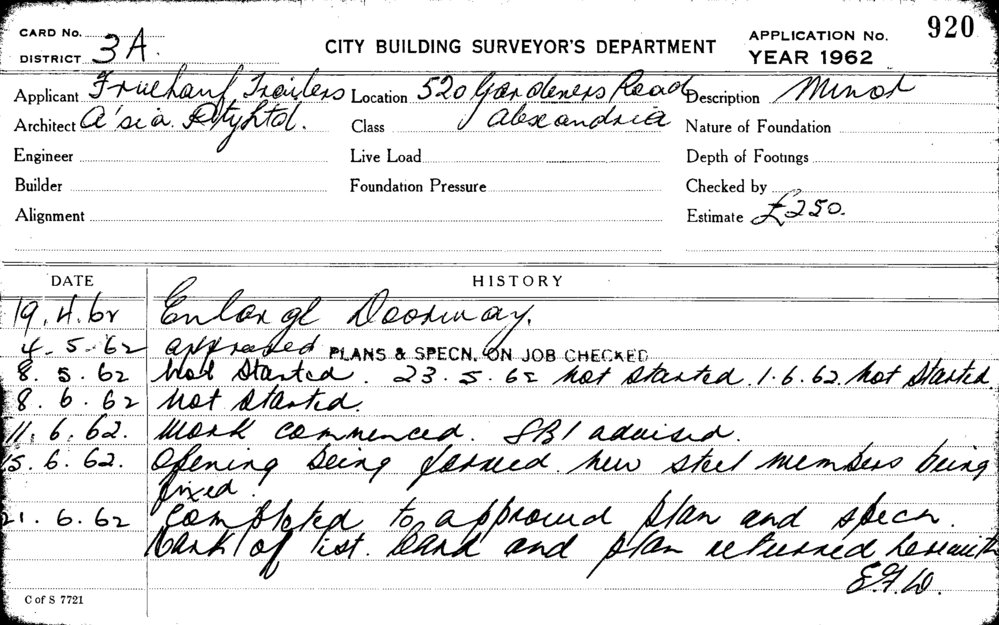 CARD No. CITY BUILDING SURVEYOR'S DEPARTMENT APPLICATION No. 920
DISTRICT 3A. YEAR 1962
Applicant Fruehauf Trailers Location 520 Gardeners Road Description Minor
Architect A'sia. Pty Ltd. Class Alexandria Nature of Foundation
Engineer Live Load Depth of Footings
Builder Foundation Pressure Checked by
Alignment Estimate £250.
DATE HISTORY
19.4.62 Enlarge Doorway.
4.5.62 approved PLANS & SPECN. ON JOB CHECKED
8.5.62 Not Started. 23.5.62 not started. 1.6.62. not started.
8.6.62 not started.
11.6.62. Work commenced. SBI advised.
15.6.62. Opening being formed new steel members being
fixed.
21.6.62 completed to approved plan and specn.
Mark of list. Card and plan returned herewith
E.F.W.
C of S 7721